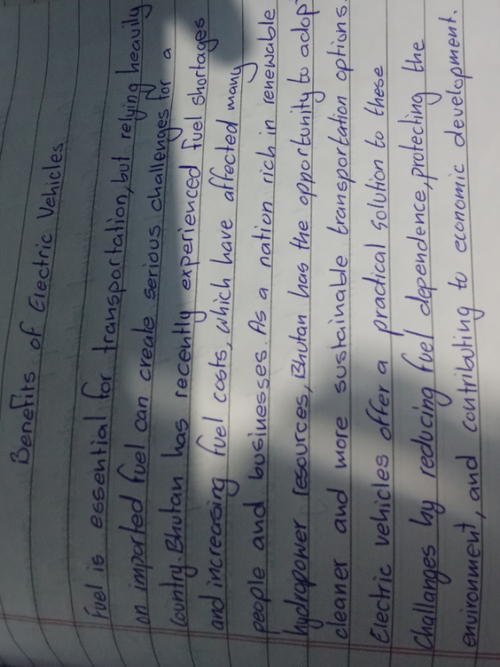 Benefits of Electric Vehicles
Fuel is essential for transportation, but relying heavily
on imported fuel can create serious challenges for a
country. Bhutan has recently experienced fuel shortages
and increasing fuel costs, which have affected many
people and businesses. As a nation rich in renewable
hydropower resources, Bhutan has the opportunity to adop
cleaner and more sustainable transportation options.
Electric vehicles offer a practical solution to these
Challanges by reducing fuel dependence, protecting the
environment, and contributing to economic development.